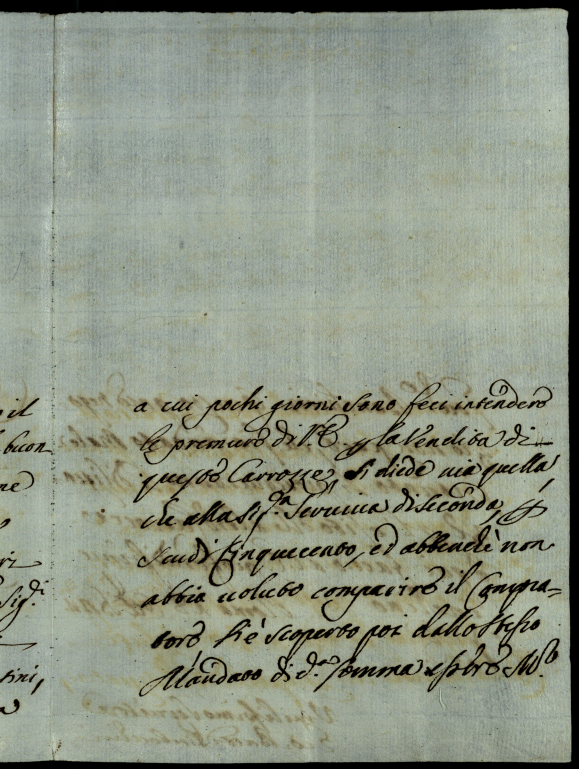 il
buon
ne
Sig.i
tini,
a cui pochi giorni sono feci intendere
le premure di V.E. p la Vendita di
queste Carrozze, si diede via quella
che alla Sig.ra serviva di seconda, p
scudi Cinquecento, ed abbenche non
abbia voluto comparire il Compra=
tore si è scoperto poi dallo stesso
Mandato di d.a somma essere M.o